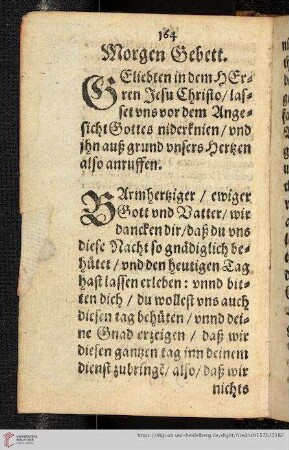 164
Morgen Gebett.
GEliebten in dem HEr-
ren Jesu Christo/ las-
set vns vor dem Ange-
sicht Gottes niderknien/ vnd
jhn auß grund vnsers Hertzen
also anruffen.
BArmhertziger / ewiger
Gott vnd Vatter/ wir
dancken dir/ daß du vns
diese Nacht so gnädiglich be-
hütet/ vnd den heutigen Tag
hast lassen erleben: vnnd bit-
ten dich / du wollest vns auch
diesen tag behüten/ vnnd dei-
ne Gnad erzeigen / daß wir
diesen gantzen tag inn deinem
dienst zubringẽ/ also/ daß wir
nichts
UNIVERSITÄTS-
BIBLIOTHEK
HEIDELBERG